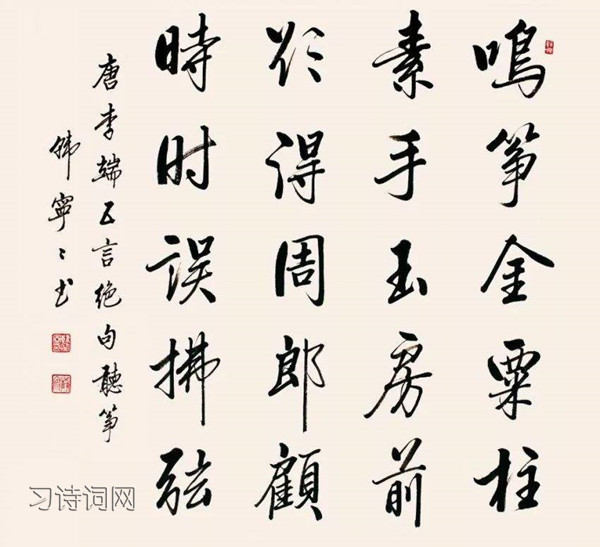 鳴筝金粟柱
素手玉房前
欲得周郎顧
時时误拂弦
唐李端五言绝句聽筝
韩寧〻书
习诗词网